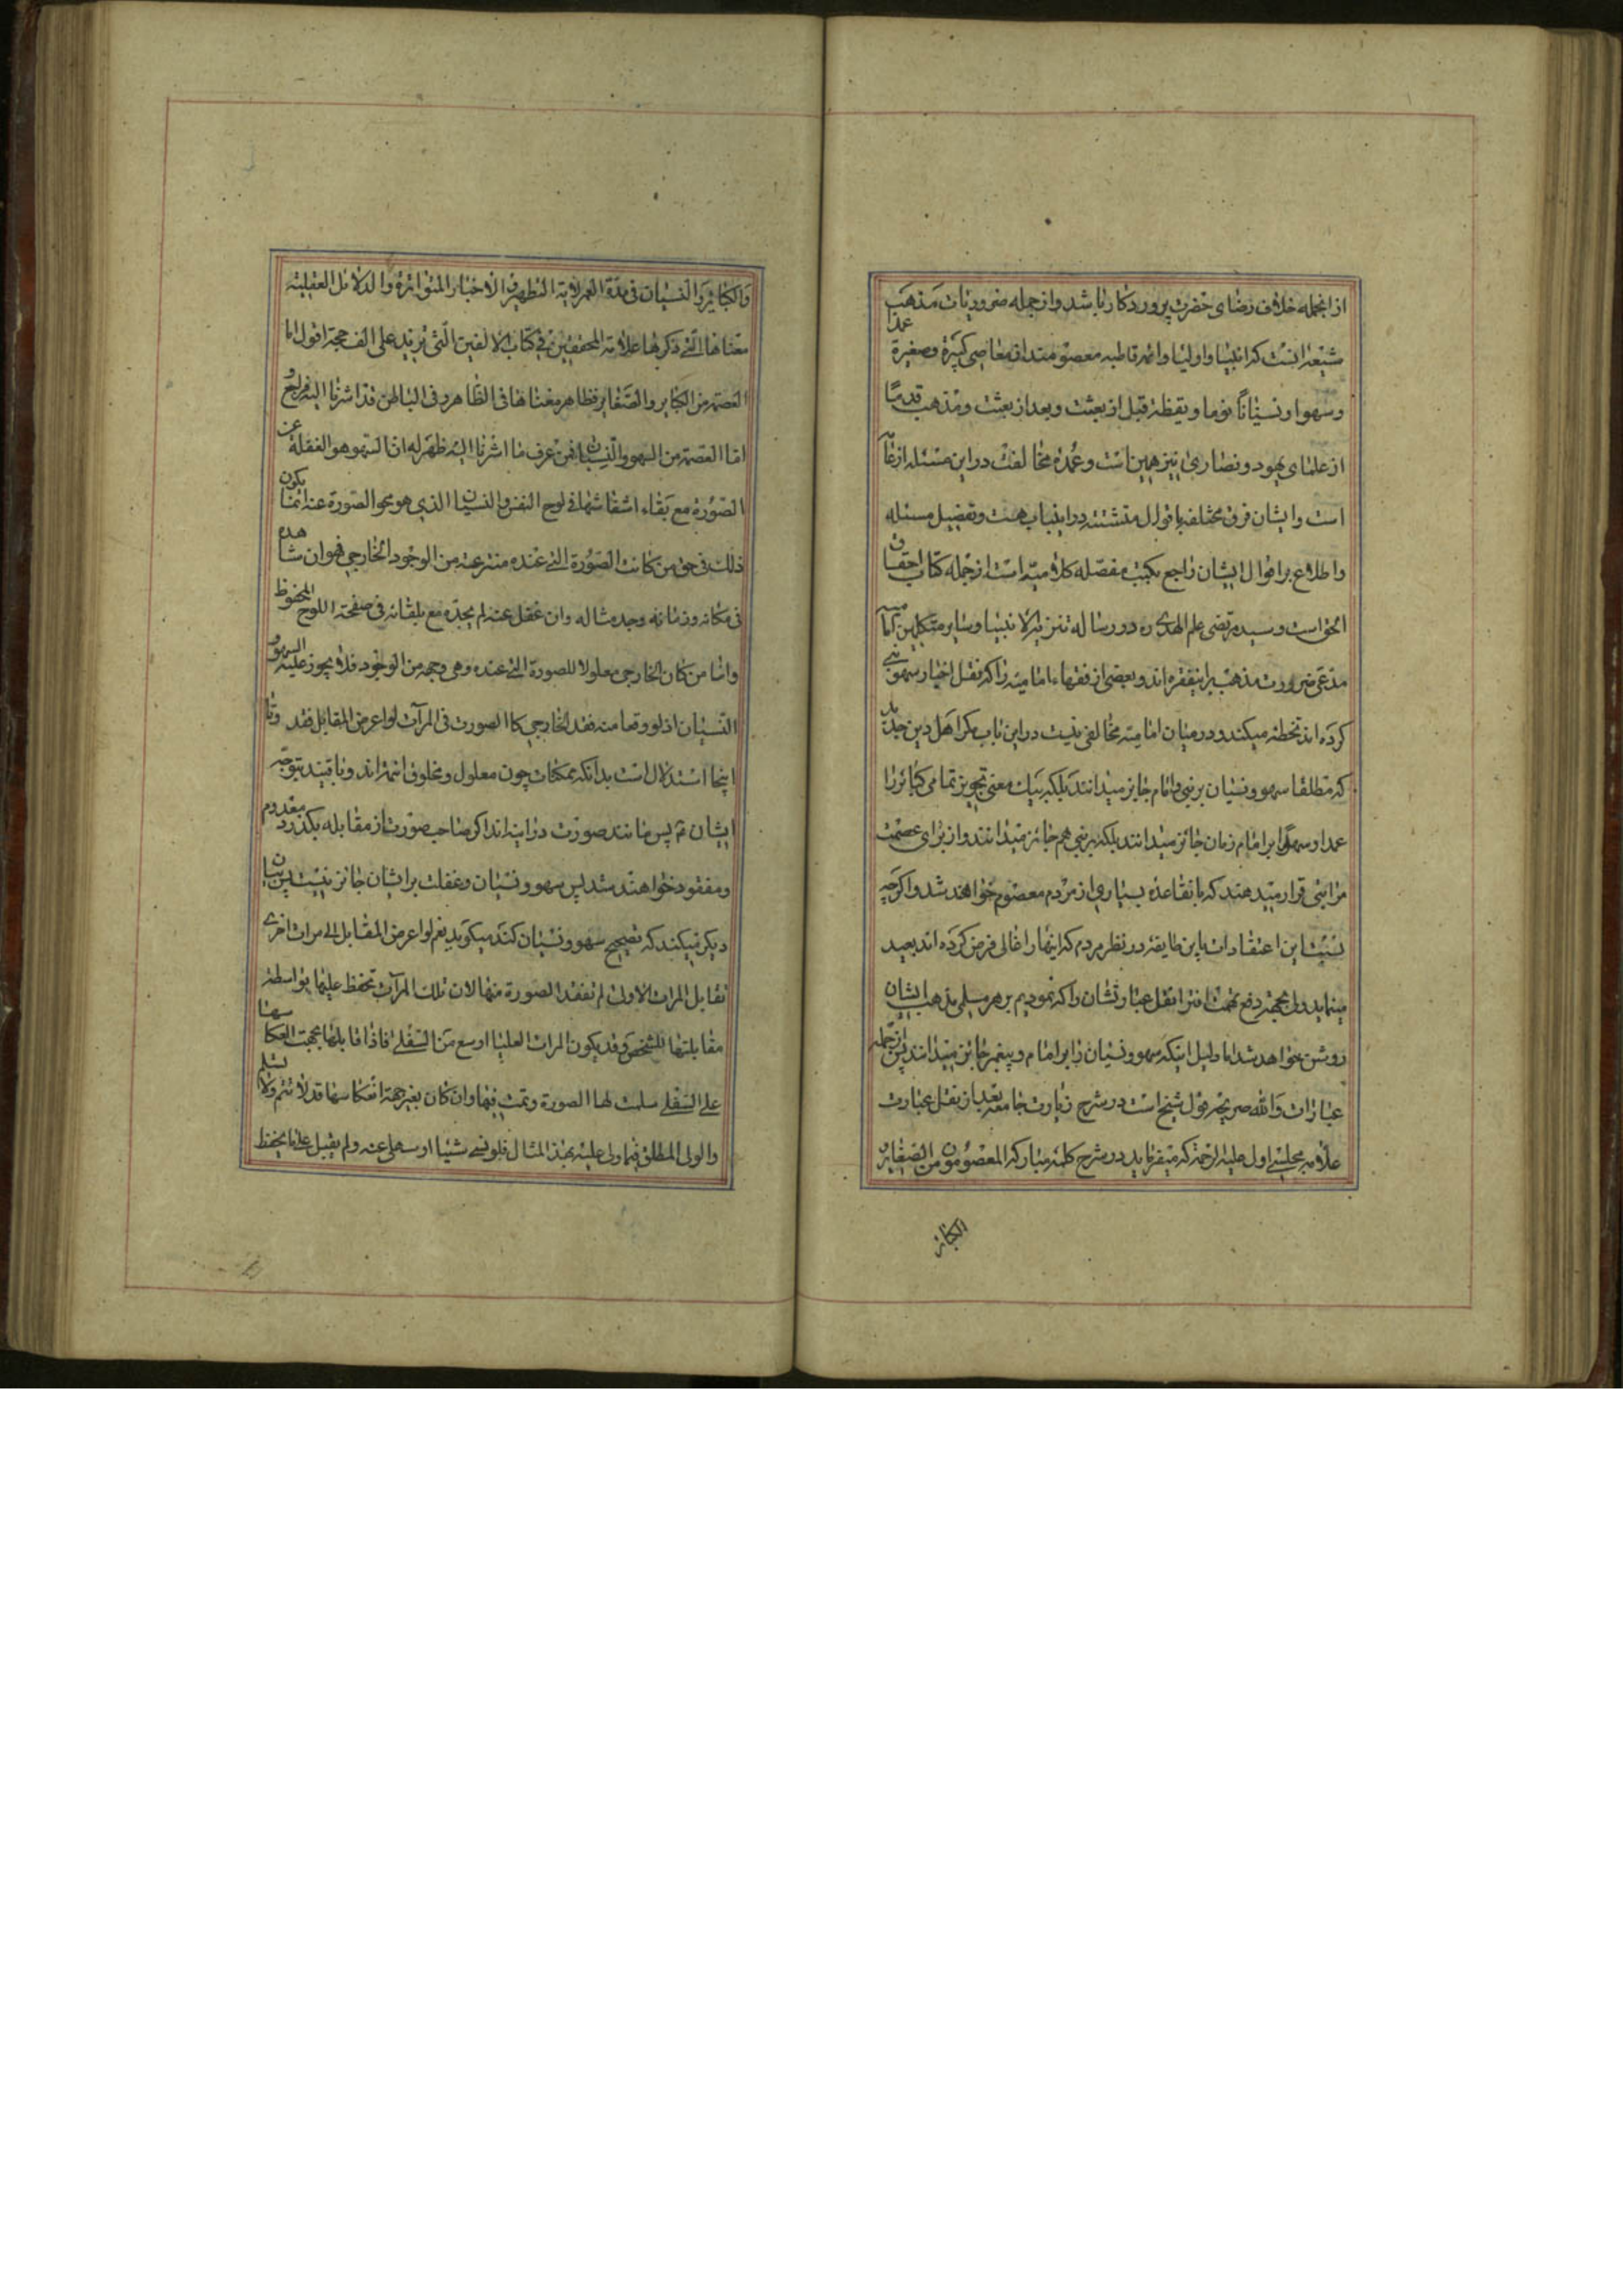 از انجمله خلاف رضای حضرت پروردکار نا باشد و از جمله ضروریات مذهب
شیعه انست که انبیا و اولیا و ائمه قاطبه معصومند از معاصی کبیرة و صغیرة عمدا
و سهوا و نسیاناً نوما و یقظة قبل از بعثت و بعد از بعثت و مذهب قدما
از علمای یهود و نصاری نیز همین است و عمده مخالفت در این مسئله از عامه
است و ایشان فرق مختلفه باقوال متشتته در اینباب هست و تفصیل مسئله
و اطلاع بر اقوال ایشان راجع بکتب مفصله کلامیه است از جمله کتاب احقاق
الحق است و سید مرتضی علم الهدی ره در رساله تنزیه الانبیا و سایر متکلمین امامیه
مدعی ضرورت مذهب بر اینفقره اند و بعضی از فقهاء امامیه را که نقل اخبار سهو نبی
کرده اند تخطئه میکنند و در میان امامیه مخالفی نیست در این باب مکر اهل دین جدید
که مطلقا سهو و نسیان بر نبی و امام جایز میدانند بلکه بیک معنی تجویز تمامی کبائر را
عمدا و سهوا بر امام زمان جائز میدانند بلکه بر نبی هم جائز میدانند و از برای عصمت
مراتبی قرار میدهند که با نقاعده بسیاری از مردم معصوم خواهند شد و اکرچه
نسبت این اعتقادات باین طایفه در نظر مردم که اینها را غالی فرض کرده اند بعید
مینماید ولی بجهة دفع تهمت افترا نقل عباراتشان را که نمودیم بر هر مسلمی مذهب ایشان
روشن خواهد شد اما دلیل اینکه سهو و نسیان را بر امام و پیغمبر جایز میدانند پس از جمله
عبارات والله صریحه قول شیخ است در شرح زیارت جامعه بعد از نقل عبارت
علامه مجلسی اول علیه الرحمة که میفرماید در شرح کلمه مبارکه المعصومون من الصغایر
الکبائر
والکبائر والنسیان فی مدة العمر لایة التطهیر والاخبار المتواترة والدلائل العقلیة
معناها التی ذکرها علامة المحققین فی کتاب الالفین التی تزید علی الف حجة اقول اما
العصمة من الکبایر والصغایر فظاهر معناها فی الظاهر و فی الباطن قد اشرنا الیه فراجع
اما العصمة من السهو والنسیان فمن عرف ما اشرنا الیه ظهر له ان السهو هو الغفلة عن
الصورة مع بقاء انتقاشها فی لوح النفس والنسیان الذی هو محو الصورة عنه انما یکون
ذلک فی حق من کانت الصورة التی عنده منتزعة من الوجود الخارجی فهو ان شاهده
فی مکانه و زمانه وجد مثاله وان غفل عنه لم یجده مع بقائه فی صفحة اللوح المحفوظ
واما من کان الخارجی معلولا للصورة التی عنده وهی وجهه من الوجود فلا یجوز علیه السهو و
النسیان اذ لو وقعا منه فقد الخارجی کالصورت فی المرآت لو اعرض المقابل فقد و تا
اینجا استدلال است بدانکه ممکنات چون معلول و مخلوق ائمه اند و باقیند بتوجه
ایشان ثم پس مانند صورت در اینه اند اکر صاحب صورت از مقابله بکذرد معدوم
و مفقود خواهند شد پس سهو و نسیان و غفلت بر ایشان جائز نیست پس بیان
دیکر میکند که تصحیح سهو و نسیان کند میکوید نعم لو اعرض المقابل الی مرات اخری
تقابل المرات الاولی لم تفقد الصورة منها لان تلک المرآت تحفظ علیها بواسطة
مقابلتها للشخص وقد یکون المرات العلیا اوسع من السفلی فاذا قابلها بجهت انعکاسها
علی السفلی سلمت لها الصورة و تمت فیها وان کان بغیر جهة انعکاسها قد لا تتم ولا تسلم
والولی المطلق فیما ولی علیه بهذا المثال فلو نسی شیئا او سهی عنه ولم یقبل علی ما یحفظ